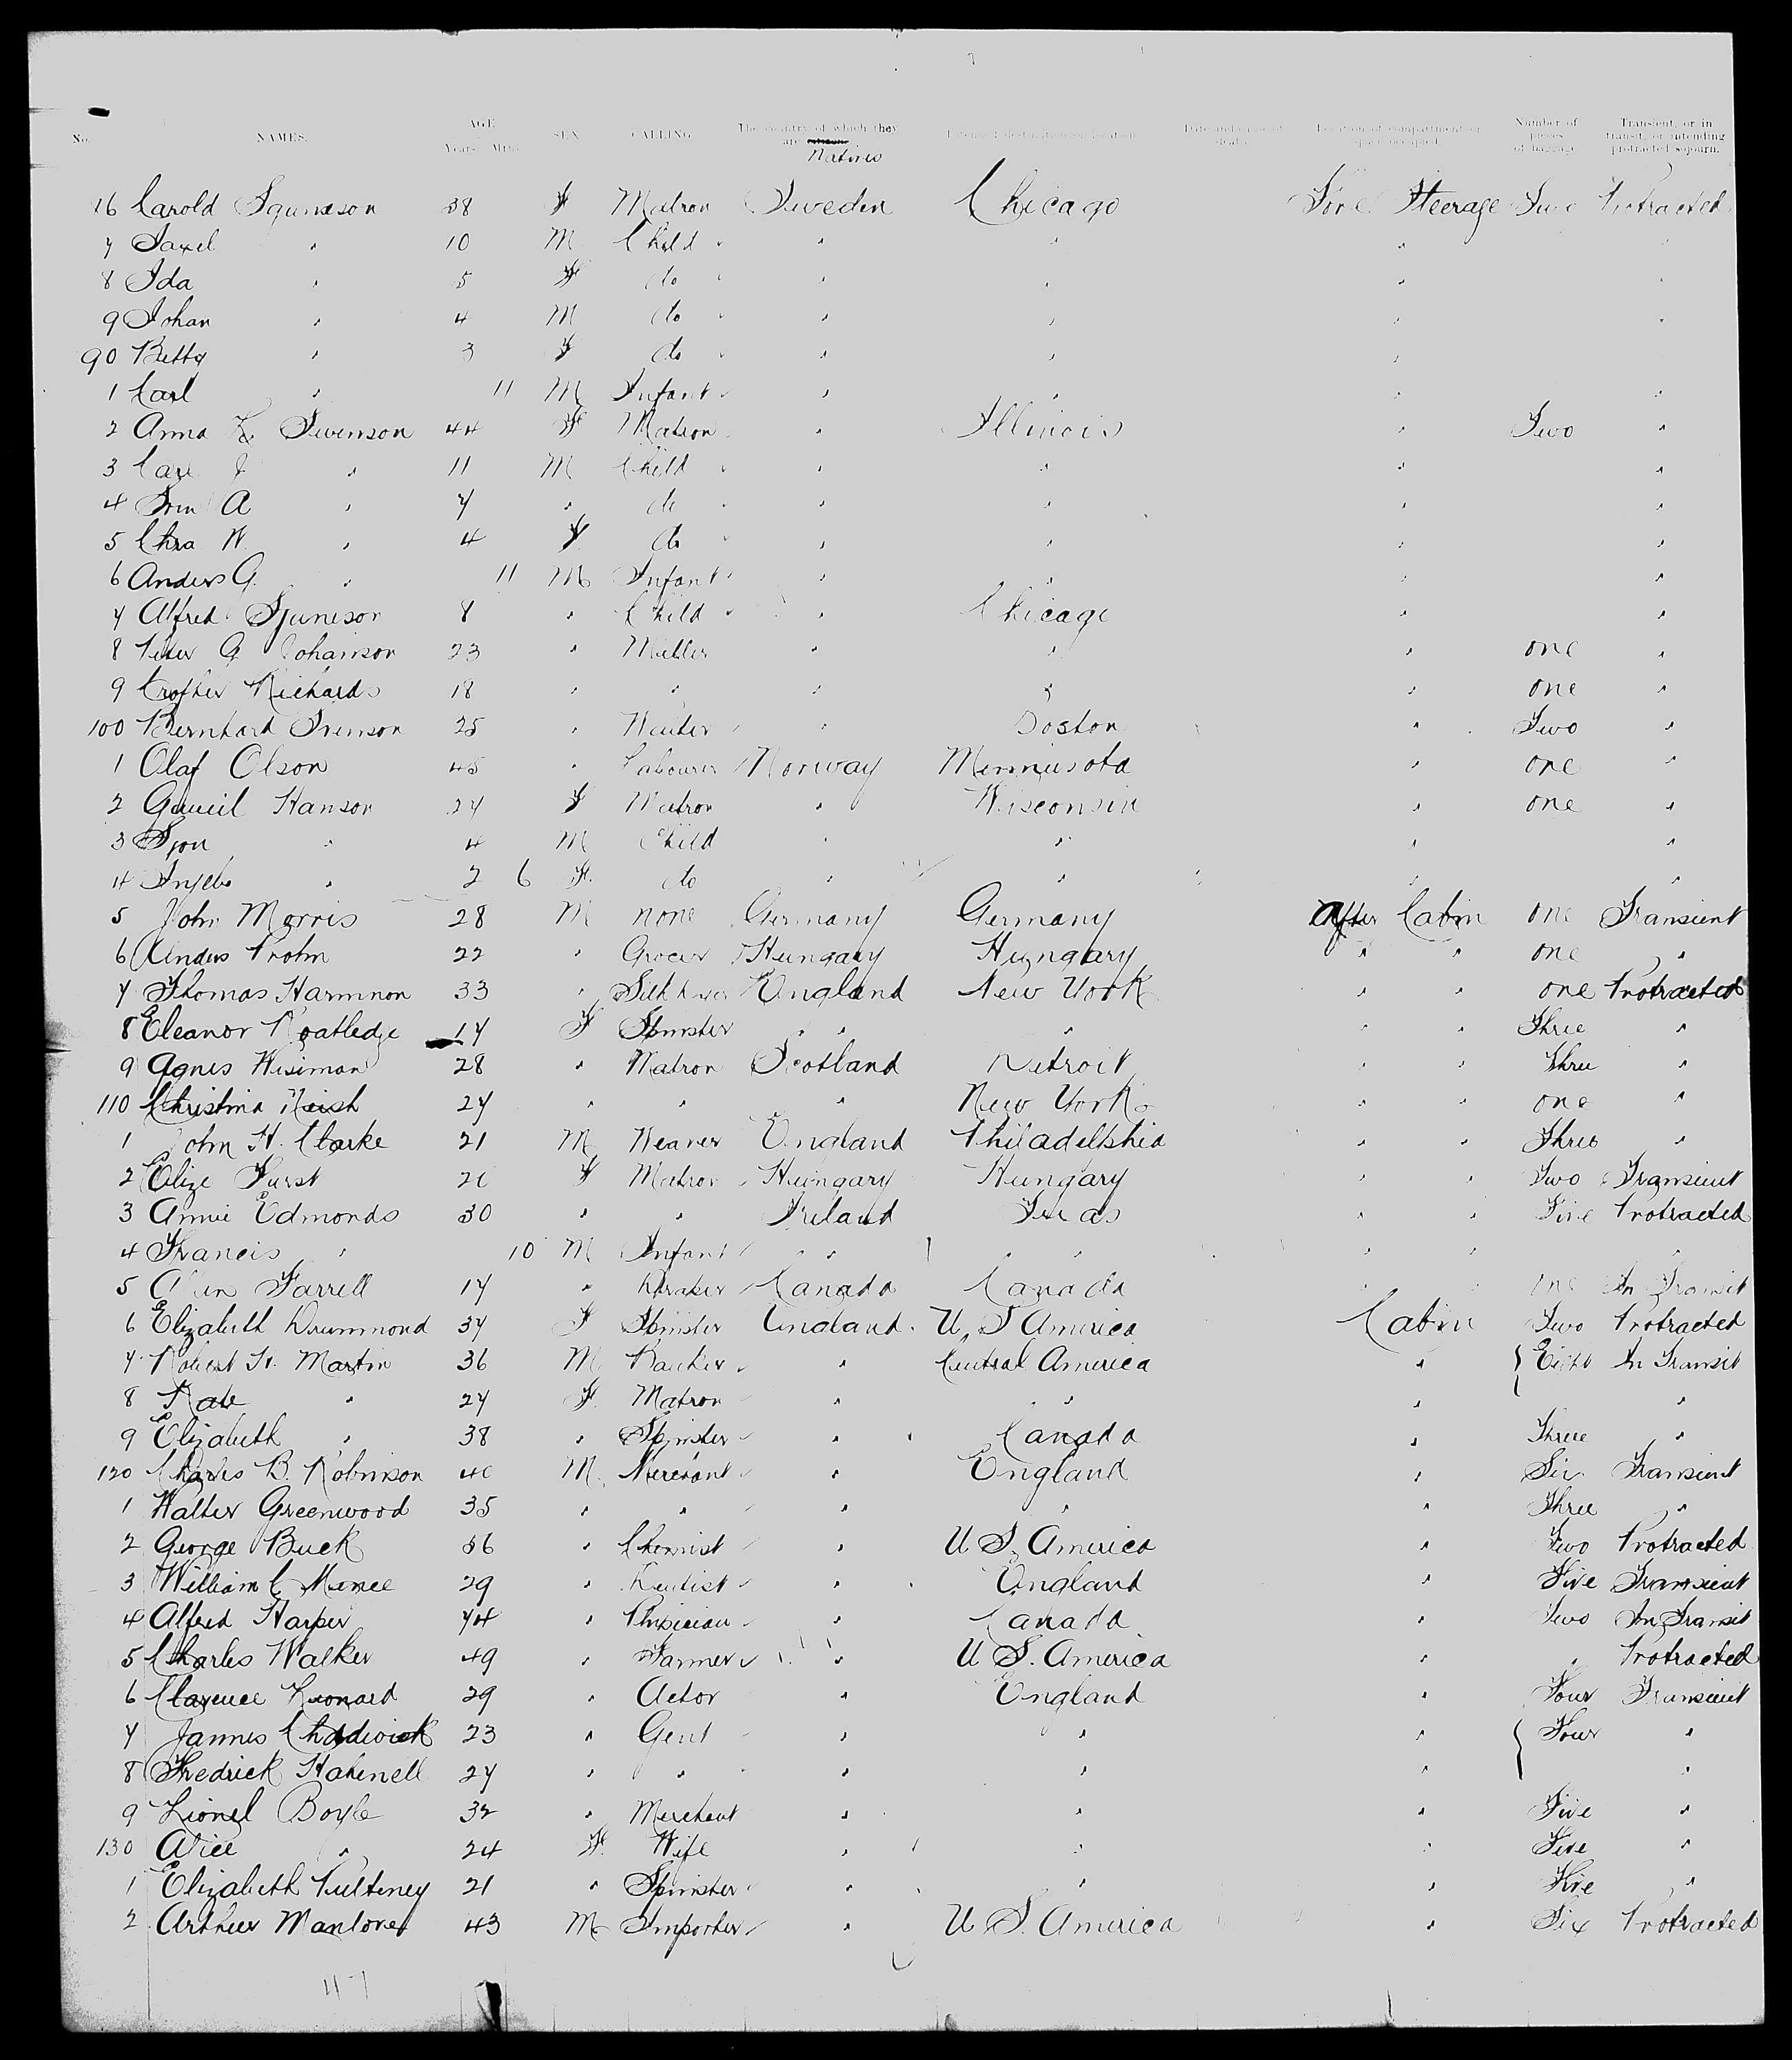 No. NAMES. AGE Years Mths SEX CALLING The country of which they are Natives Intended destination or location Date and cause of death Location of compartment or space occupied Number of pieces of baggage Transient, or in transit, or intending protracted sojourn.
Carold 38 F Matron Sweden Chicago Fore Steerage Two Protracted
7 " 10 M Child " " " "
8 Ida " 5 F do " " " "
9 Johan " 4 M do " " " "
90 Betty " 3 F do " " " "
1 Carl " 11 M Infant " " " "
2 Anna Swenson 44 F Matron " Illinois " Two "
3 " 11 M Child " " " "
4 A " 7 " do " " " "
5 " 4 F do " " " "
6 Anders G. " 11 M Infant " " " "
7 Alfred 8 " Child " Chicago " "
8 Peter G Johanson 23 " Miller " " " one "
9 Richards 18 " " " " " one "
100 Bernhard Svenson 25 " " Boston " Two "
1 Olaf Olson 45 " Labourer Norway Minnisota " one "
2 Hanson 27 F Matron " Wisconsin " one "
3 " 4 M Child " " " "
4 " 2 6 F. do " " " "
5 John Morris 28 M none Germany Germany After Cabin one Transient
6 22 " Grocer Hungary Hungary " " one "
7 Thomas Harmnon 33 " England New York " " one Protracted
8 Eleanor Roatledge 17 F Spinster " " " " Three "
9 Agnes Wiseman 28 " Matron Scotland Detroit " " Three "
110 Christina 27 " " " New York " " one "
1 John H. Clarke 21 M Weaver England Philadelphia " " Three "
2 Elize Furst F Matron Hungary Hungary " " Two Transient
3 Annie Edmonds 30 " " Ireland Texas " " Five Protracted
4 Francis " 10 M Infant " " " " "
5 Farrell 17 " Draper Canada Canada " " one In Transit
6 Elizabeth Drummond 37 F Spinster England U. S America Cabin Two Protracted
7 Robert Martin 36 M Banker " Central America " Eight In Transit
8 Kate " 27 F. Matron " " " "
9 Elizabeth " 38 " Spinster " Canada " Three "
120 Charles B. Robinson 40 M. Merchant " England " Six Transient
1 Walter Greenwood 35 " " " " " Three "
2 George Buck 56 " Chemist " U S. America " Two Protracted
3 William C 29 " Dentist " England " Five Transient
4 Alfred Harper 74 " Phisician " Canada " Two In Transit
5 Charles Walker 49 " Farmer " U S. America " " Protracted
6 Clarence Leonard 29 " Actor " England " Four Transient
7 James Chadwick 23 " Gent " " " Four "
8 Fredrick 27 " " " " " "
9 Lionel Boyle 32 " Merchant " " " Five "
130 Alice " 24 F. Wife " " " Five "
1 Elizabeth Pulteney 21 " Spinster " " " Five "
2 Arthur Manlover 43 M Importer " U S. America " Six Protracted
47